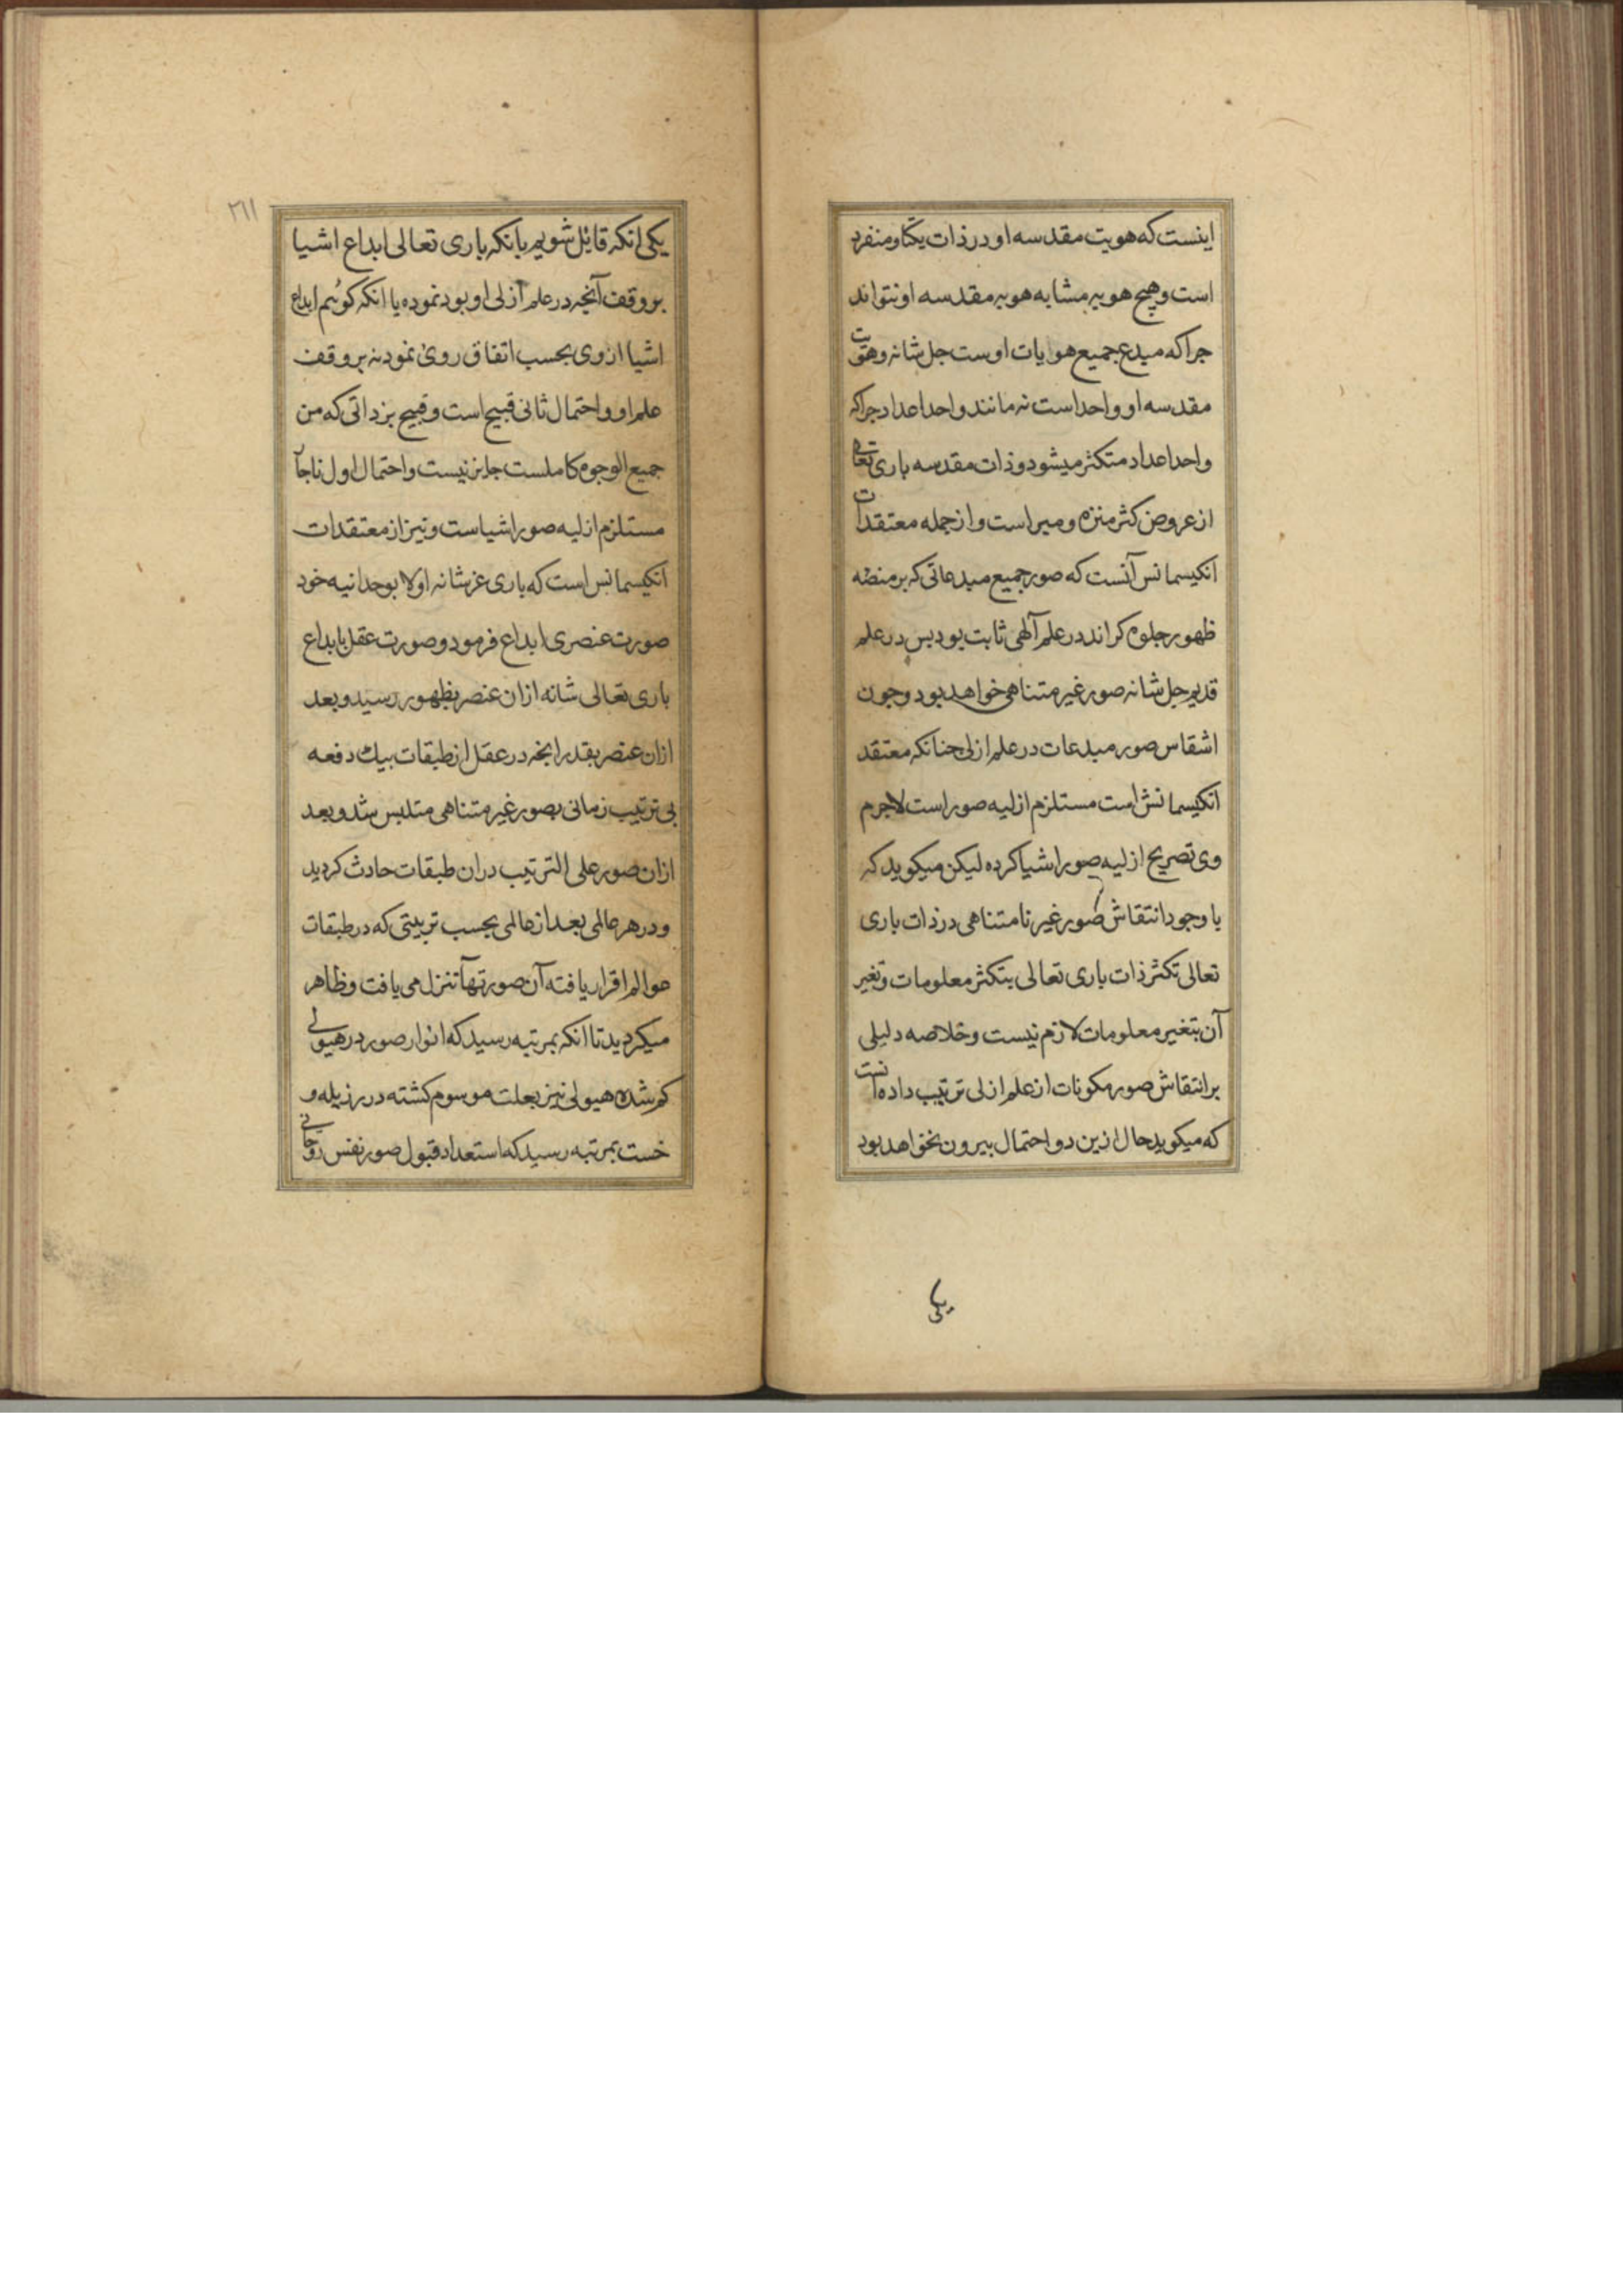 اینست که هویت مقدسه او در ذات یکتا و منفرد
است و هیچ هویه مشابه هویه مقدسه او نتواند
جرا که مبدع جمیع هوایات اوست جل شانه و هویت
مقدسه او واحد است نه مانند واحد اعداد جراکه
واحد اعداد متکثر میشود و ذات مقدسه باری تعالی
از عروض کثر منزه و مبرا است و از جمله معتقدات
انکیسمانس آنست که صور جمیع مبدعاتی که بر منصهٔ
ظهور جلوه کراند در علم آلهی ثابت بود بس در علم
قدیم جل شانه صور غیر متناهی خواهد بود و جون
اشقاس صور مبدعات در علم ازلی جنانکه معتقد
انکیسمانش است مستلزم ازلیه صور است لاجرم
وی تصریح ازلیه صور اشیا کرده لیکن میکوید که
با وجود انتقاش صور غیر نا متناهی در ذات باری
تعالی تکثر ذات باری تعالی بتکثر معلومات و تغیر
آن بتغیر معلومات لازم نیست و خلاصه دلیلی
بر انتقاش صور مکونات از علم ازلی ترتیب داده انست
که میکوید حال ازین دو احتمال بیرون نخواهد بود
یکی
۲۱۱
یکی انکه قایل شویم بانکه باری تعالی ابداع اشیا
بر وقف آنجه در علم ازلی او بود نموده یا انکه کوئیم ابداع
اشیا از وی بحسب اتفاق روی نمود نه بر وقف
علم او و احتمال ثانی قبیح است و قبیح بر ذاتی که من
جمیع الوجوه کاملست جایز نیست و احتمال اول ناجآ
مستلزم ازلیه صور اشیا است و نیز از معتقدات
انکیسمانس است که باری عز شانه اولا بوحدانیه خود
صورت عنصری ابداع فرمود و صورت عقل بابداع
باری تعالی شانه ازان عنصر بظهور رسید و بعد
ازان عنصر بقدر انجه در عقل از طبقات بیك دفعه
بی ترتیب زمانی بصور غیر متناهی متلبس شد و بعد
ازان صور علی الترتیب دران طبقات حادث کردید
و در هر عالمی بعد از عالمی بحسب تربیتی که در طبقات
عوالم اقرار یافته آن صورتها تنزل می یافت و ظاهر
میکردید تا انکه بمرتبه رسید که انوار صور در هیولی
کم شده هیولی نیز بعلت موسوم کشته در رذیله و
خست بمرتبه رسید که استعداد قبول صور نفس روحانی